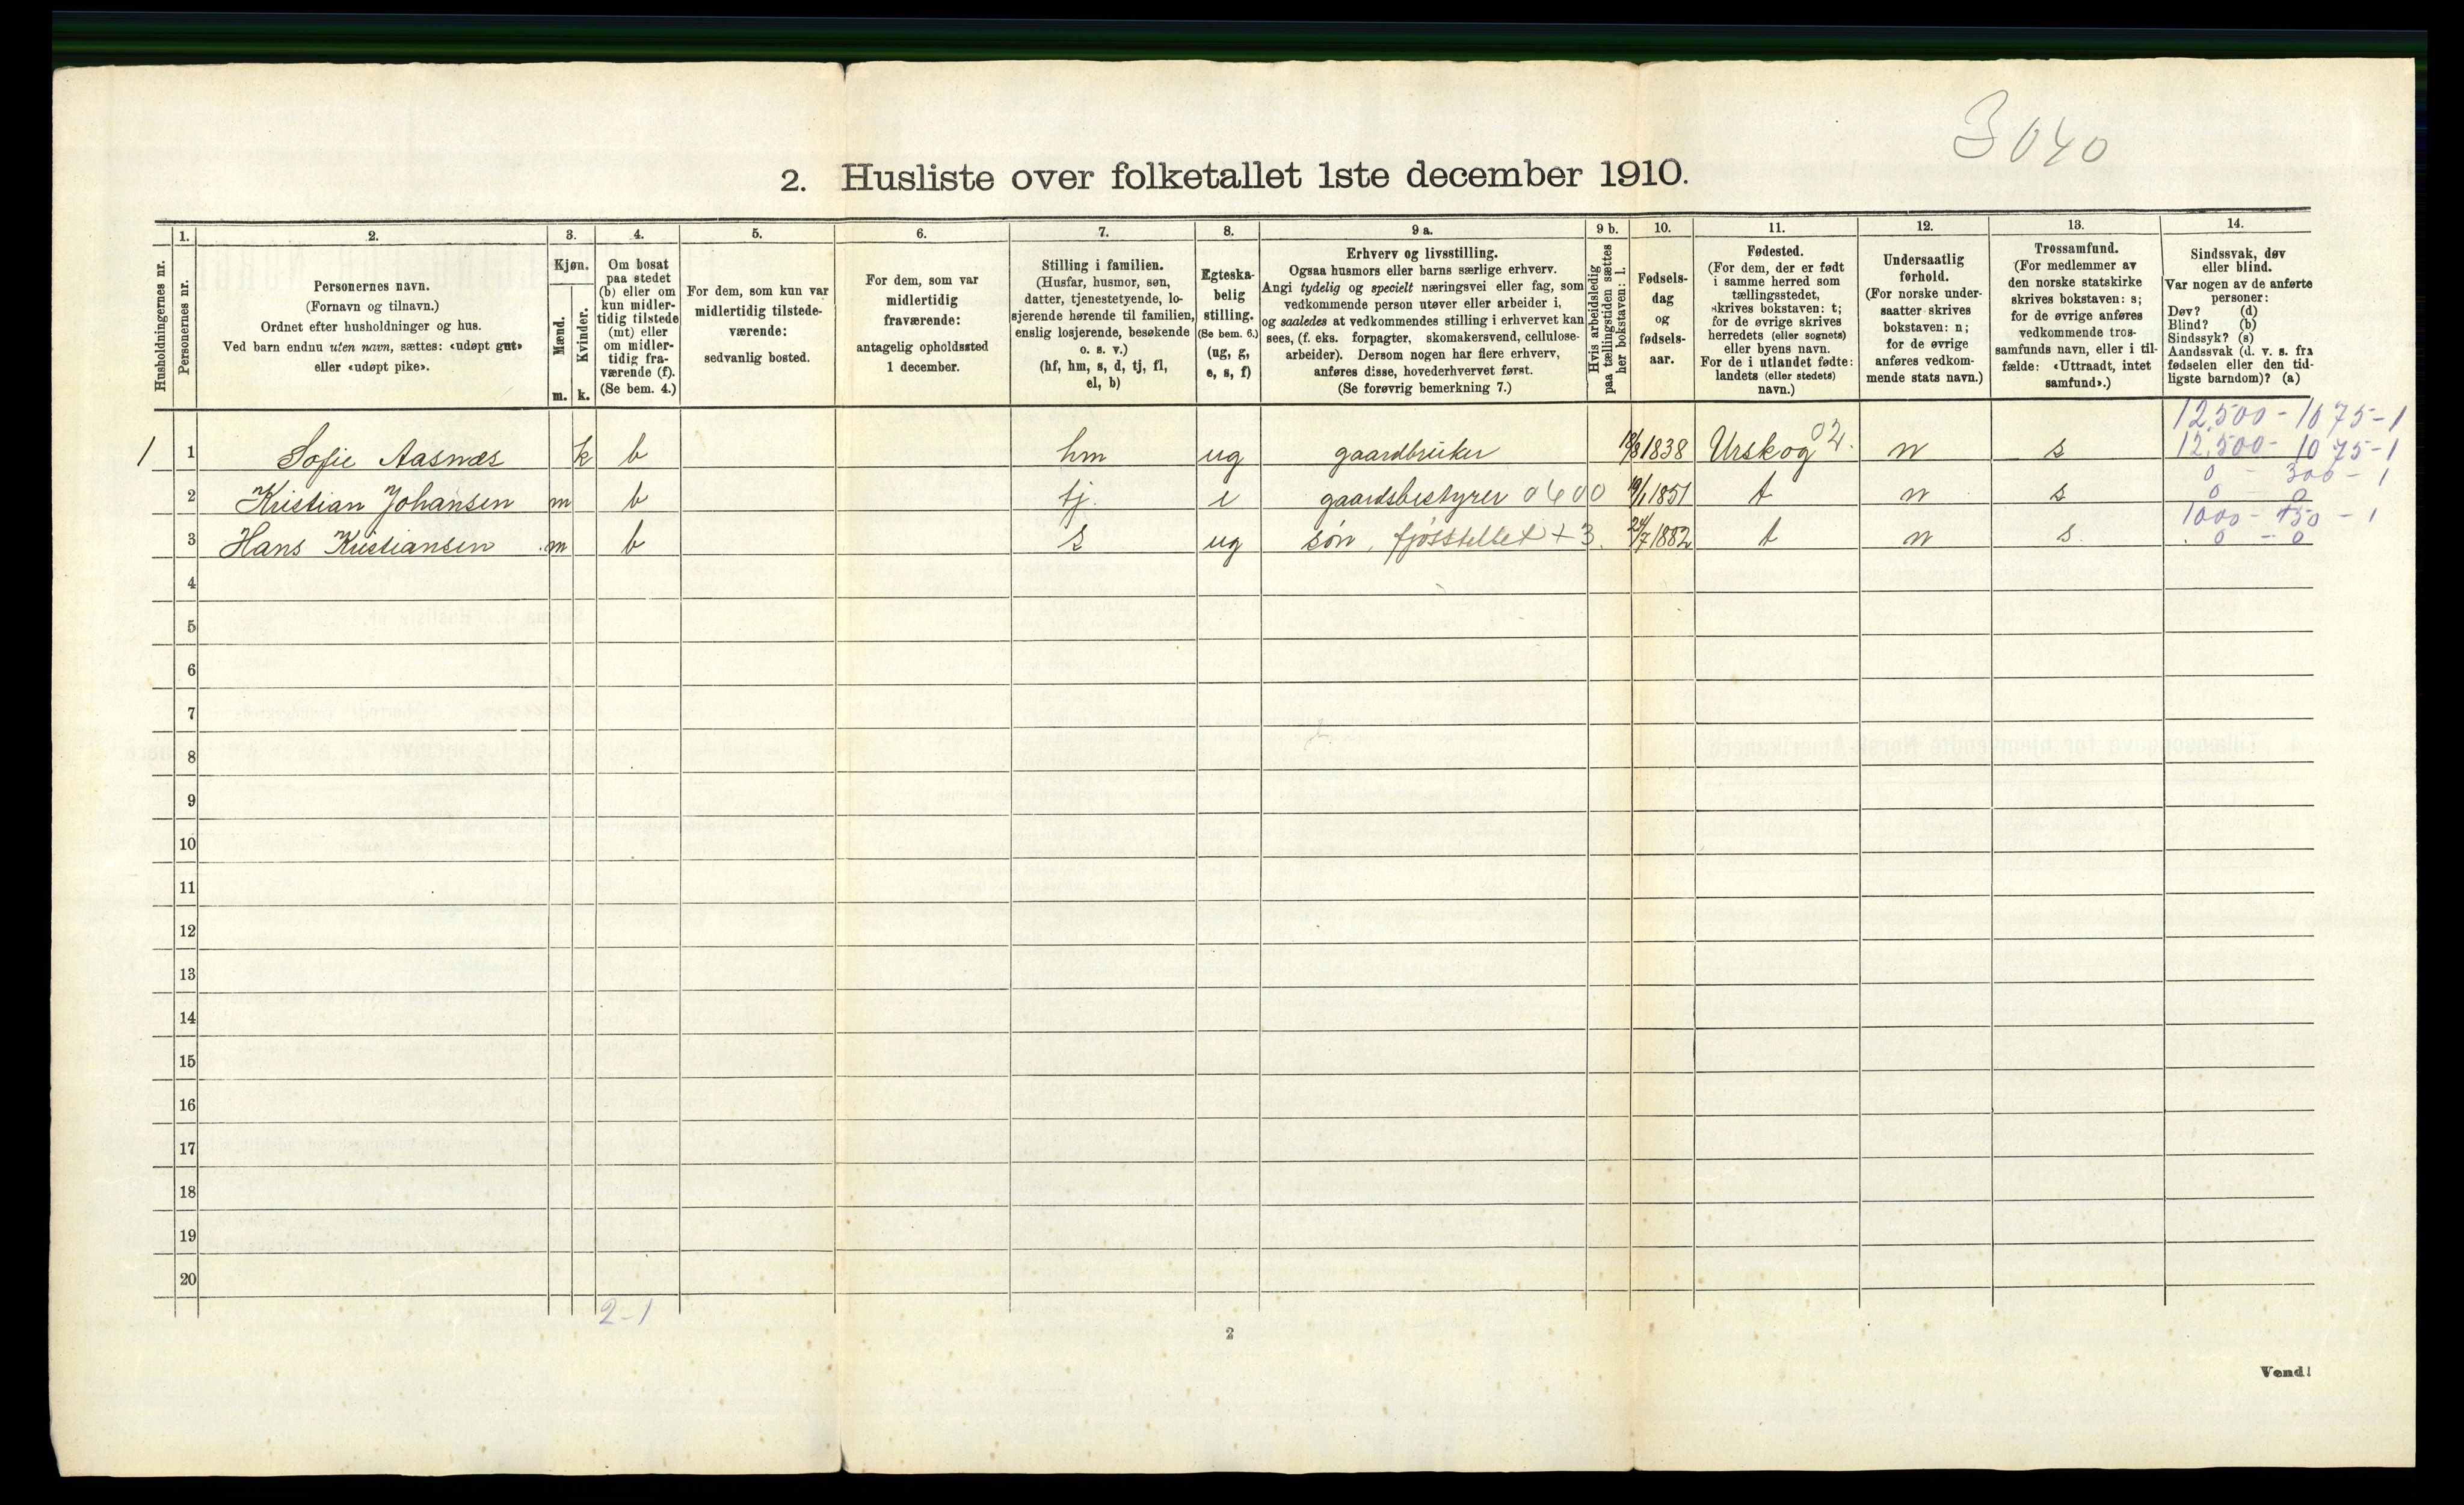 3040
2. Husliste over folketallet 1ste december 1910.
Husholdningernes nr.
1.
Personernes nr.
2.
Personernes navn.
(Fornavn og tilnavn.)
Ordnet efter husholdninger og hus.
Ved barn endnu uten navn, sættes: «udøpt gut»
eller «udøpt pike».
3.
Kjøn.
Mænd.
Kvinder.
m. k.
4.
Om bosat
paa stedet
(b) eller om
kun midler-
tidig tilstede
(mt) eller
om midler-
tidig fra-
værende (f).
(Se bem. 4.)
5.
For dem, som kun var
midlertidig tilstede-
værende:
sedvanlig bosted.
6.
For dem, som var
midlertidig
fraværende:
antagelig opholdssted
1 december.
7.
Stilling i familien.
(Husfar, husmor, søn,
datter, tjenestetyende, lo-
sjerende hørende til familien,
enslig losjerende, besøkende
o. s. v.)
(hf, hm, s, d, tj, fl,
el, b)
8.
Egteska-
belig
stilling.
(Se bem. 6.)
(ug, g,
e, s, f)
9 a.
Erhverv og livsstilling.
Ogsaa husmors eller barns særlige erhverv.
Angi tydelig og specielt næringsvei eller fag, som
vedkommende person utøver eller arbeider i,
og saaledes at vedkommendes stilling i erhvervet kan
sees, (f. eks. forpagter, skomakersvend, cellulose-
arbeider). Dersom nogen har flere erhverv,
anføres disse, hovederhvervet først.
(Se forøvrig bemerkning 7.)
9 b.
Hvis arbeidsledig
paa tællingstiden sættes
her bokstaven: l.
10.
Fødsels-
dag
og
fødsels-
aar.
11.
Fødested.
(For dem, der er født
i samme herred som
tællingsstedet,
skrives bokstaven: t;
for de øvrige skrives
herredets (eller sognets)
eller byens navn.
For de i utlandet fødte:
landets (eller stedets)
navn.)
12.
Undersaatlig
forhold.
(For norske under-
saatter skrives
bokstaven: n;
for de øvrige
anføres vedkom-
mende stats navn.)
13.
Trossamfund.
(For medlemmer av
den norske statskirke
skrives bokstaven: s;
for de øvrige anføres
vedkommende tros-
samfunds navn, eller i til-
fælde: «Uttraadt, intet
samfund».)
14.
Sindssvak, døv
eller blind.
Var nogen av de anførte
personer:
Døv? (d)
Blind? (b)
Sindssyk? (s)
Aandssvak (d. v. s. fra
fødselen eller den tid-
ligste barndom)? (a)
12.500 - 1075 - 1
1 1 Sofie Aasnæs k b hm ug gaardbruker 18/8 1838 Urskog 02. n s 12.500 - 1075 - 1
0 - 300 - 1
2 Kristian Johansen m b tj. e gaardsbestyrer 0400 19/1 1851 t n s 0 - 0
1000 - 450 - 1
3 Hans Kristiansen m b s ug søn, fjøsstellet + 3. 24/7 1882 t n s 0 - 0
4
5
6
7
8
9
10
11
12
13
14
15
16
17
18
19
20
2-1
2
Vend!